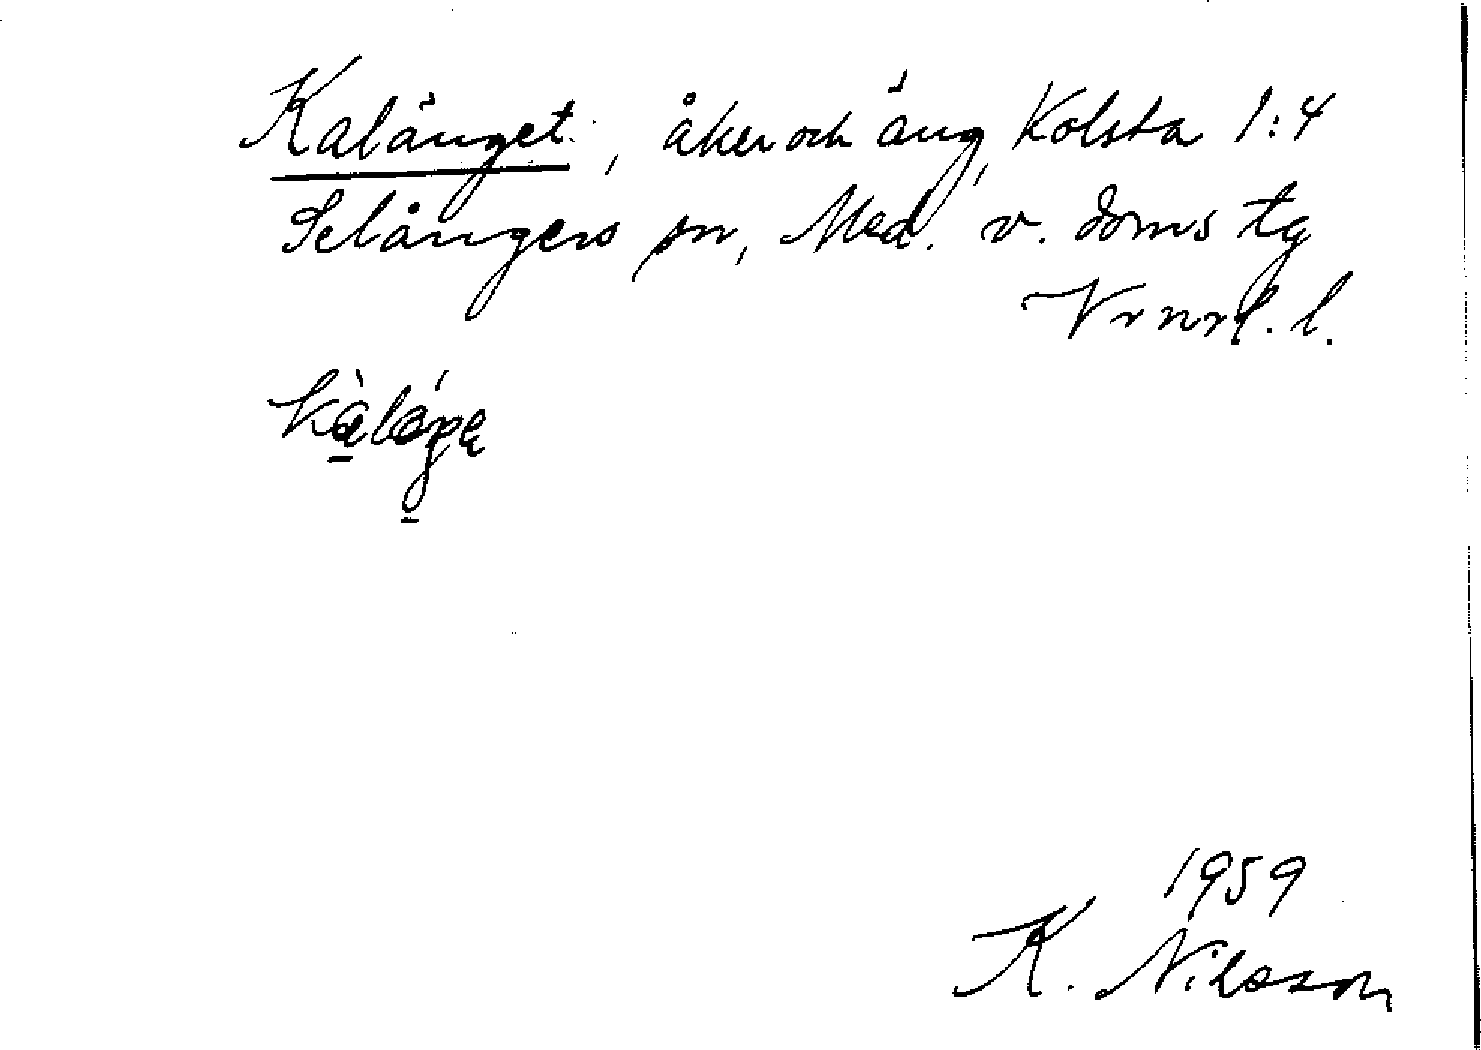 Kalänget, åker och äng, Kolsta 1:4
Selångers sn, Med. v. doms tg
Vrnrl. l.
1959
K. Nilsson